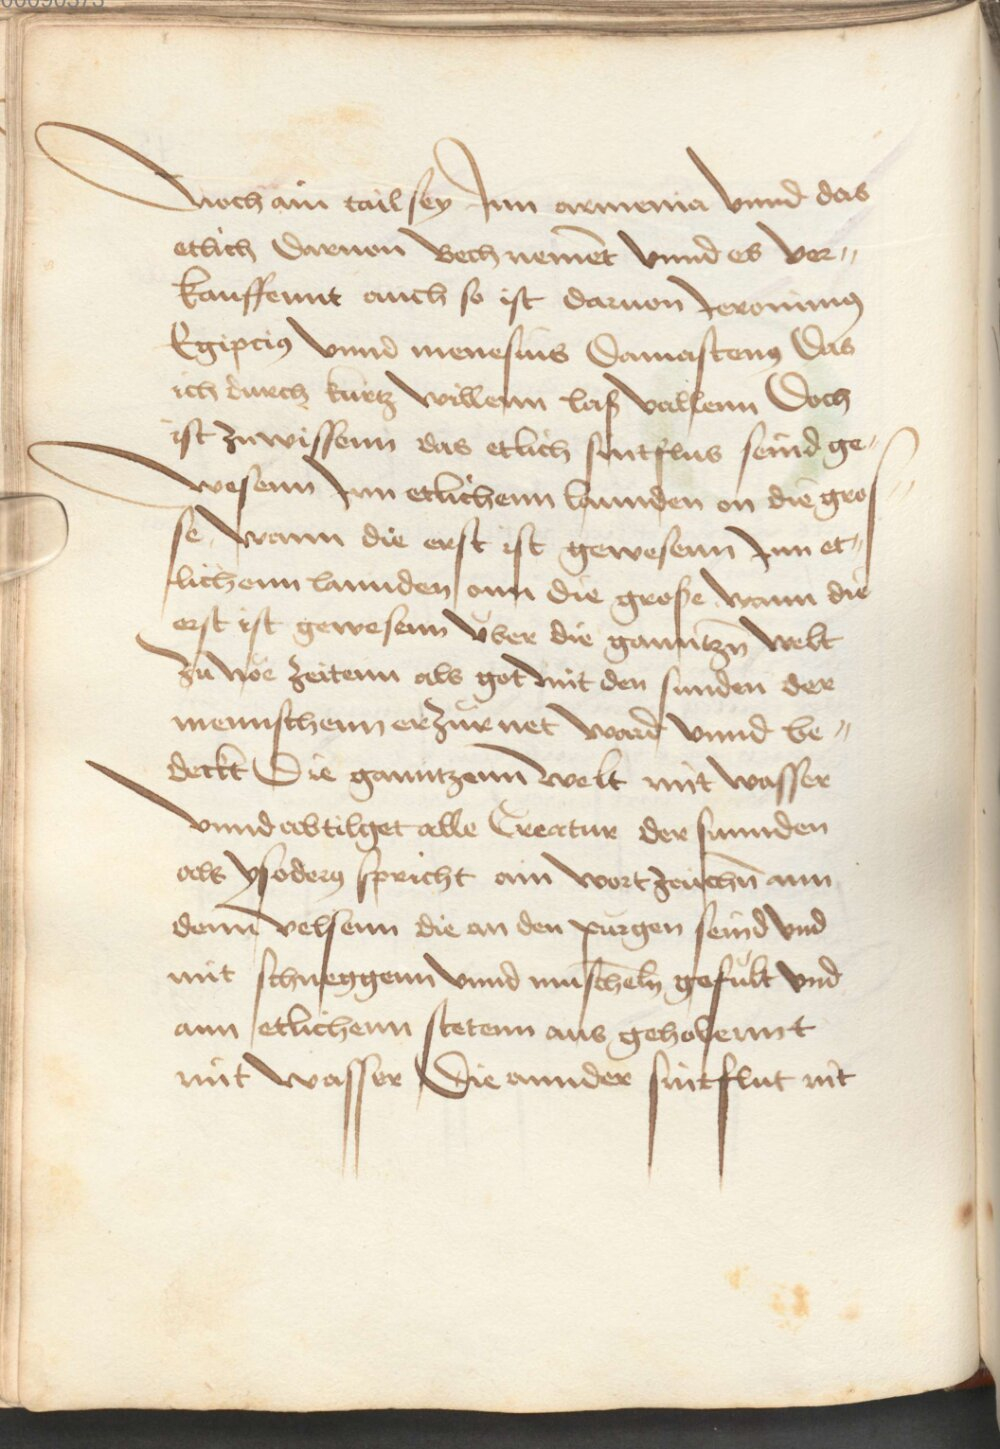 noch ain tail sey Inn armenia vnnd das
etlich daruon Bech nement vnnd es ver„
kauffennt auch so ist daruon Jeronimus
Egiptius vnnd menesius Damastenus Das
ich durch kurtz willenn laß vallenn Doch
ist zuwissenn das etlich sintflus seind ge„
wesenn Inn etlichenn lannden on die gros„
se wann die erst ist gewesenn Inn et„
lichenn lannden onn die große wann die
erst ist gewesenn über die ganntzn welt
zu noe zeitenn als got mit den sunden der
mennschenn erzürnet ward vnnd be„
deckt Die ganntzenn welt mit wasser
vnnd abtilget alle Creatur der sunnden
als ysoderus spricht ain wortzeichn ann
denn velsenn die an den purgen seind vnd
mit schneggenn vnnd muscheln gefült vnd
ann etlichenn stetenn aus gehobennt
mit wasser Die annder sintflut nit